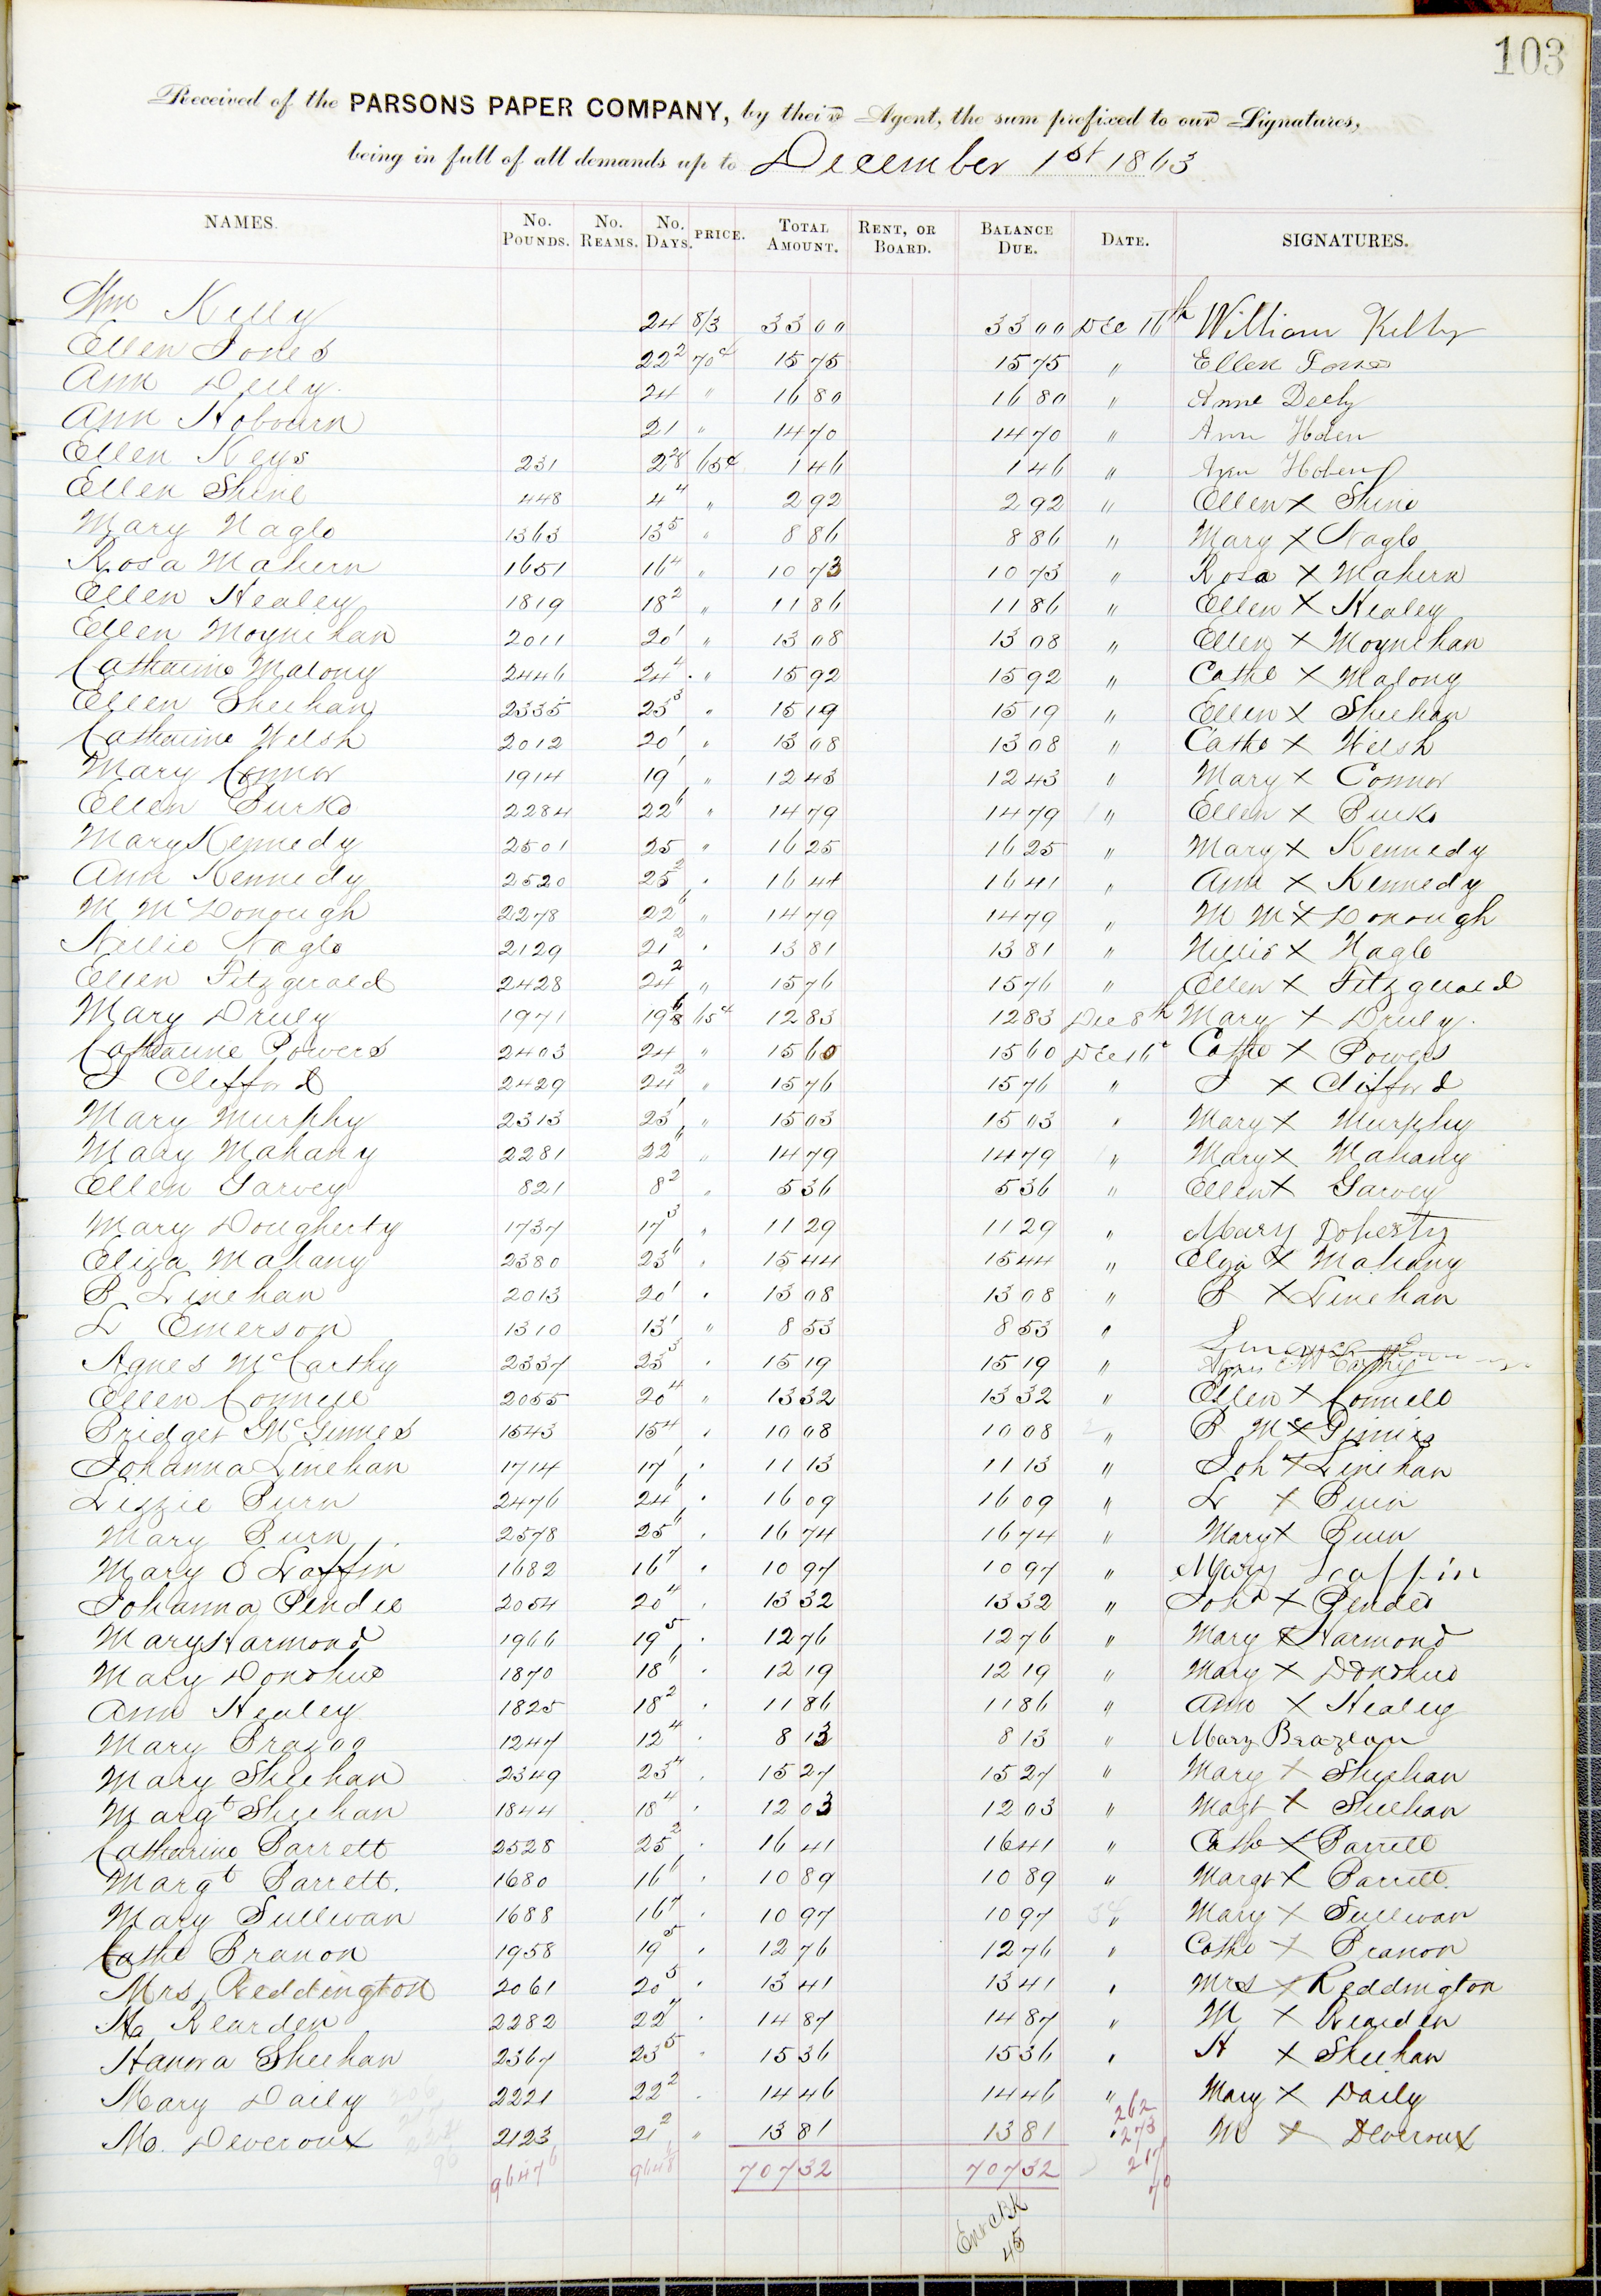 103
Received of the PARSONS PAPER COMPANY, by their Agent, the sum prefixed to our Signatures,
being in full of all demands up to December 1st 1863
NAMES. No. POUNDS. No. REAMS. No. DAYS. PRICE. TOTAL AMOUNT. RENT, OR BOARD. BALANCE DUE. DATE. SIGNATURES.
Wm Kelly 24 8/3 33 00 33 00 Dec 16th William Kelly
Ellen Jones 22 2 70c 15 75 15 75 " Ellen Jones
Ann Delly 24 " 16 80 16 80 " Anne Deely
Ann Hobourn 21 " 14 70 14 70 " Ann Hoben
Ellen Keys 231 65c 1 46 1 46 " Ann Hoben
Ellen Shine 448 4 4 " 2 92 2 92 " Ellen X Shine
Mary Nagle 1363 13 5 " 8 86 8 86 " Mary X Nagle
Rosa Mahern 1651 16 4 " 10 73 10 73 " Rosa X Mahern
Ellen Healey 1819 18 2 " 11 86 11 86 " Ellen X Healey
Ellen Moynihan 2011 20 1 " 13 08 13 08 " Ellen X Moynihan
Catharine Malony 2446 24 4 " 15 92 15 92 " Cathe X Malony
Ellen Sheehan 2335 23 3 " 15 19 15 19 " Ellen X Sheehan
Catharine Welsh 2012 20 1 " 13 08 13 08 " Cathe X Welsh
Mary Connor 1914 19 1 " 12 43 12 43 " Mary X Connor
Ellen Burke 2284 22 6 " 14 79 14 79 " Ellen X Burke
Mary Kennedy 2501 25 " 16 25 16 25 " Mary X Kennedy
Ann Kennedy 2520 25 2 " 16 41 16 41 " Ann X Kennedy
M McDonough 2278 22 6 " 14 79 14 79 " M Mc X Donough
Nellie Nagle 2129 21 2 " 13 81 13 81 " Nellie X Nagle
Ellen Fitzgerald 2428 24 2 " 15 76 15 76 " Ellen X Fitzgerald
Mary Druly 1971 19 6 65c 12 83 12 83 Dec 8th Mary X Druly
Catharine Powers 2403 24 " 15 60 15 60 Dec 16 Cathe X Powers
J Clifford 2429 24 2 " 15 76 15 76 " J X Clifford
Mary Murphy 2313 23 1 " 15 03 15 03 " Mary X Murphy
Mary Mahany 2281 22 6 " 14 79 14 79 " Mary X Mahany
Ellen Garvey 821 8 2 " 5 36 5 36 " Ellen X Garvey
Mary Dougherty 1737 17 3 " 11 29 11 29 " Mary Doherty
Eliza Mahany 2380 23 6 " 15 44 15 44 " Eliza X Mahany
B Linehan 2013 20 1 " 13 08 13 08 " B X Linehan
L Emerson 1310 13 1 " 8 53 8 53 "
Agnes McCarthy 2337 23 3 " 15 19 15 19 " Agnes McCarthy
Ellen Connell 2055 20 4 " 13 32 13 32 " Ellen X Connell
Bridget McGinnes 1543 15 4 " 10 08 10 08 " B Mc X Ginnis
Johanna Linehan 1714 17 1 " 11 13 11 13 " Joh X Linehan
Lizzie Burn 2476 24 6 " 16 09 16 09 " L X Burn
Mary Burn 2578 25 6 " 16 74 16 74 " Mary X Burn
Mary O Laffin 1682 16 7 " 10 97 10 97 " Mary Laffin
Johanna Pendee 2054 20 4 " 13 32 13 32 " Joha X Pendee
Mary Harmond 1966 19 5 " 12 76 12 76 " Mary X Harmond
Mary Donohue 1870 18 6 " 12 19 12 19 " Mary X Donohue
Ann Healey 1825 18 2 " 11 86 11 86 " Ann X Healey
Mary 1247 12 4 " 8 13 8 13 " Mary Brazean
Mary Sheehan 2349 23 4 " 15 27 15 27 " Mary X Sheehan
Margt Sheehan 1844 18 4 " 12 03 12 03 " Magt X Sheehan
Catharine Barrett 2528 25 2 " 16 41 16 41 " Cathe X Barrett
Margt Barrett. 1680 16 6 " 10 89 10 89 " Margt X Barrett.
Mary Sullivan 1688 16 7 " 10 97 10 97 " Mary X Sullivan
Cathe Branon 1958 19 5 " 12 76 12 76 " Cathe X Branon
Mrs Reddington 2061 20 5 " 13 41 13 41 " Mrs X Reddington
Rearden 2282 22 7 " 14 87 14 87 " M X Rearden
Hanora Sheehan 2367 23 5 " 15 36 15 36 " H X Sheehan
Mary Daily 2221 22 2 " 14 46 14 46 " Mary X Daily
M. Deveroux 2123 21 2 " 13 81 13 81 " M X Deveroux
96476 9648 707 32 707 32
262
273
217
70
Ent CBK
45